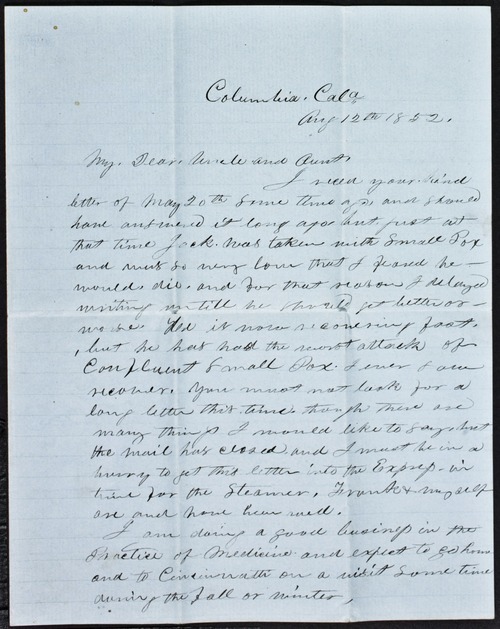 Columbia. Cala
Aug 12th 1852.
My. Dear. Uncle and Aunt
I recd your. kind
letter of May 20th some time ago and should
have answered it long ago but just at
that time Jack. was taken with Small Pox
and was so very low that I feared he
would. die. and for that reason I delayed
writing untill he should get better or
worse. He is now recovering fast.
but he has had the worst attack of
Confluent Small Pox. I ever saw
recover. You must not look for a
long letter this time though there are
many things I would like to say. but
the mail has closed and I must be in a
hurry to get this letter into the Express. in
time for the Steamer, Frank & myself
are and have been well.
I am doing a good business in the
Practice of Medicine and expect to go home
and to Cincinnati on a visit some time
during the fall or winter,